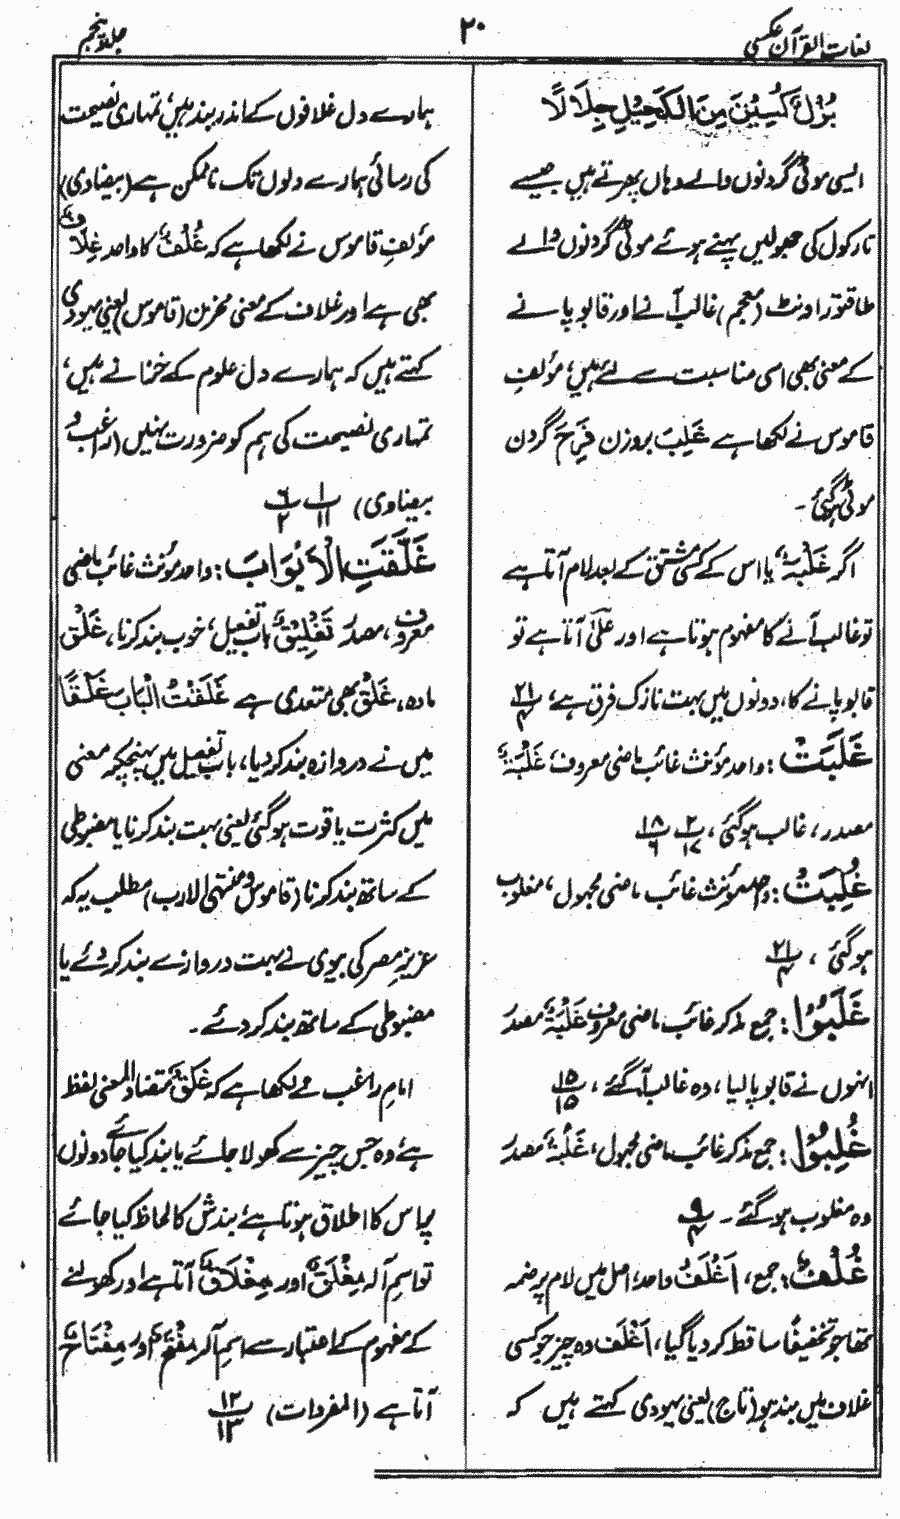 لغات القرآن عکسی
۲۰
جلد پنجم
بُزْلٌ كُسِيْنَ مِنَ الْكَحِيْلِ جِلَالًا
ایسی موٹی گردنوں والے وہاں پھرتے ہیں جیسے
تارکول کی جھولیں پہنے ہوئے موٹی گردنوں والے
طاقتور اونٹ (معجم) غالب آنے اور قابو پانے
کے معنی بھی اسی مناسبت سے لئے ہیں، مؤلفِ
قاموس نے لکھا ہے غَلِبَ بروزن فَرِحَ گردن
موٹی ہو گئی۔
اگر غَلَبَۃٌ یا اس کے کسی مشتق کے بعد لام آتا ہے
تو غالب آنے کا مفہوم ہوتا ہے اور علیٰ آتا ہے تو
قابو پانے کا، دونوں میں بہت نازک فرق ہے، ۲۱/۴
غَلَبَتْ : واحد مؤنث غائب ماضی معروف، غَلَبَۃٌ
مصدر، غالب ہو گئی، ۲/۱۷ ۱۸/۶
غُلِبَتْ : واحد مؤنث غائب ماضی مجہول، مغلوب
ہو گئی، ۲۱/۴
غَلَبُوْا : جمع مذکر غائب ماضی معروف غَلَبَۃٌ مصدر
انہوں نے قابو پا لیا، وہ غالب آ گئے، ۱۵/۱۵
غُلِبُوْا : جمع مذکر غائب ماضی مجہول، غَلَبَۃٌ مصدر
وہ مغلوب ہو گئے۔ ۹/۴
غُلْفٌ : جمع، اَغْلَفُ واحد، اصل میں لام پر ضمہ
تھا جو تخفیفًا ساقط کر دیا گیا، اَغْلَف وہ چیز جو کسی
غلاف میں بند ہو (تاج) یعنی یہودی کہتے ہیں کہ
ہمارے دل غلافوں کے اندر بند ہیں، تمہاری نصیحت
کی رسائی ہمارے دلوں تک ناممکن ہے (بیضاوی)
مؤلفِ قاموس نے لکھا ہے کہ غُلْفٌ کا واحد غِلَافٌ
بھی ہے اور غلاف کے معنی مخزن (قاموس) یعنی یہودی
کہتے ہیں کہ ہمارے دل علوم کے خزانے ہیں،
تمہاری نصیحت کی ہم کو ضرورت نہیں (راغب و
بیضاوی) ۱/۱۱ ۶/۲
غَلَّقَتِ الْاَبْوَابَ : واحد مؤنث غائب ماضی
معروف، مصدر تَغْلِیْقٌ باب تفعیل، خوب بند کرنا، غَلْق
مادہ، غَلْق بھی متعدی ہے غَلَقْتُ الْبَابَ غَلْقًا
میں نے دروازہ بند کر دیا، باب تفعیل میں پہنچ کر معنی
میں کثرت یا قوت ہو گئی یعنی بہت بند کرنا یا مضبوطی
کے ساتھ بند کرنا (قاموس و منتہی الارب) مطلب یہ کہ
عزیزِ مصر کی بیوی نے بہت دروازے بند کر دئے یا
مضبوطی کے ساتھ بند کر دئے۔
امام راغب نے لکھا ہے کہ غَلْقٌ متضاد المعنی لفظ
ہے، وہ جس چیز سے کھولا جائے یا بند کیا جائے دونوں
پر اس کا اطلاق ہوتا ہے، بندش کا لحاظ کیا جائے
تو اسم آلہ مِغْلَقٌ اور مِغْلَاقٌ آتا ہے اور کھولنے
کے مفہوم کے اعتبار سے اسم آلہ مِفْتَحٌ اور مِفْتَاحٌ
آتا ہے (المفردات) ۱۲/۱۳